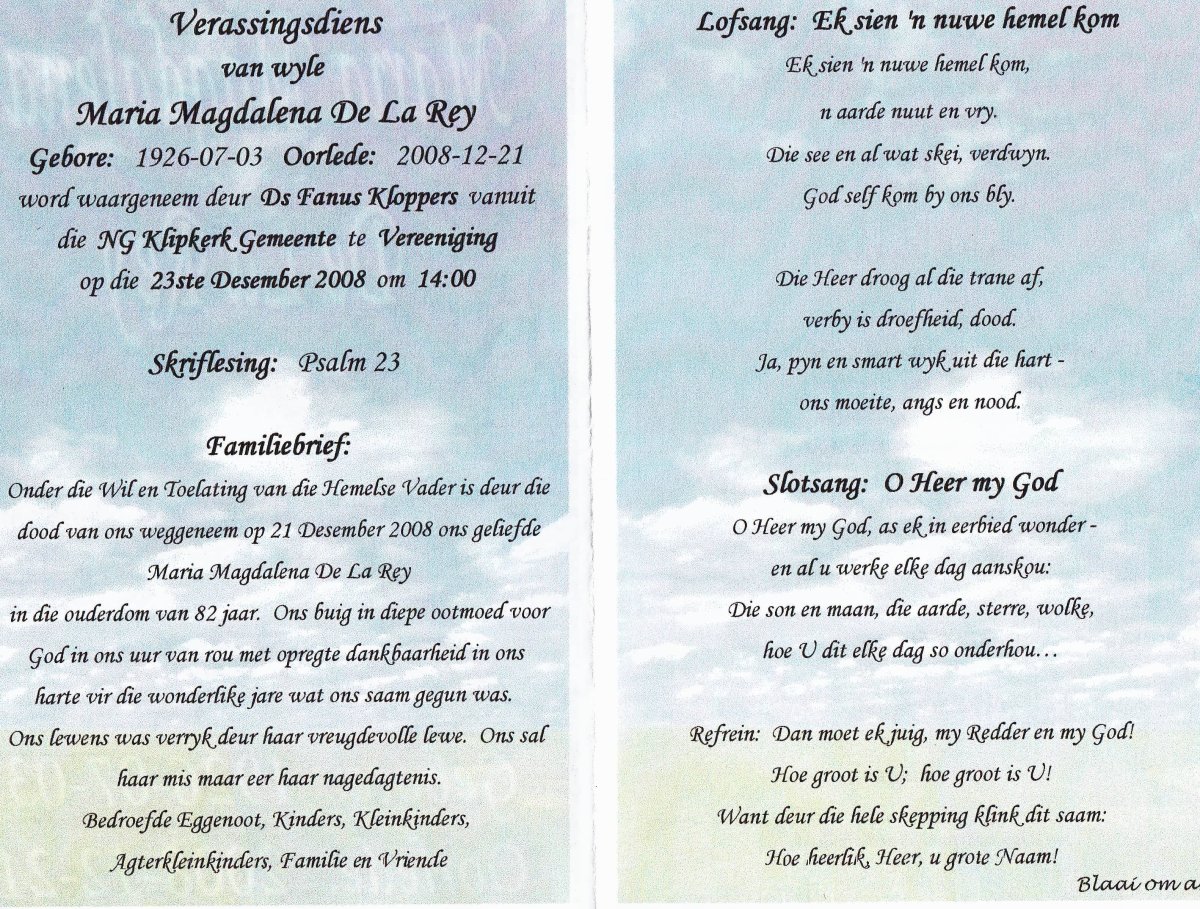 Verassingsdiens
van wyle
Maria Magdalena De La Rey
Gebore: 1926-07-03 Oorlede: 2008-12-21
word waargeneem deur Ds Fanus Kloppers vanuit
die NG Klipkerk Gemeente te Vereeniging
op die 23ste Desember 2008 om 14:00
Skriflesing: Psalm 23
Familiebrief:
Onder die Wil en Toelating van die Hemelse Vader is deur die
dood van ons weggeneem op 21 Desember 2008 ons geliefde
Maria Magdalena De La Rey
in die ouderdom van 82 jaar. Ons buig in diepe ootmoed voor
God in ons uur van rou met opregte dankbaarheid in ons
harte vir die wonderlike jare wat ons saam gegun was.
Ons lewens was verryk deur haar vreugdevolle lewe. Ons sal
haar mis maar eer haar nagedagtenis.
Bedroefde Eggenoot, Kinders, Kleinkinders,
Agterkleinkinders, Familie en Vriende
Lofsang: Ek sien 'n nuwe hemel kom
Ek sien 'n nuwe hemel kom,
n aarde nuut en vry.
Die see en al wat skei, verdwyn.
God self kom by ons bly.
Die Heer droog al die trane af,
verby is droefheid, dood.
Ja, pyn en smart wyk uit die hart -
ons moeite, angs en nood.
Slotsang: O Heer my God
O Heer my God, as ek in eerbied wonder -
en al u werke elke dag aanskou:
Die son en maan, die aarde, sterre, wolke,
hoe U dit elke dag so onderhou...
Refrein: Dan moet ek juig, my Redder en my God!
Hoe groot is U; hoe groot is U!
Want deur die hele skepping klink dit saam:
Hoe heerlik, Heer, u grote Naam!
Blaai om a